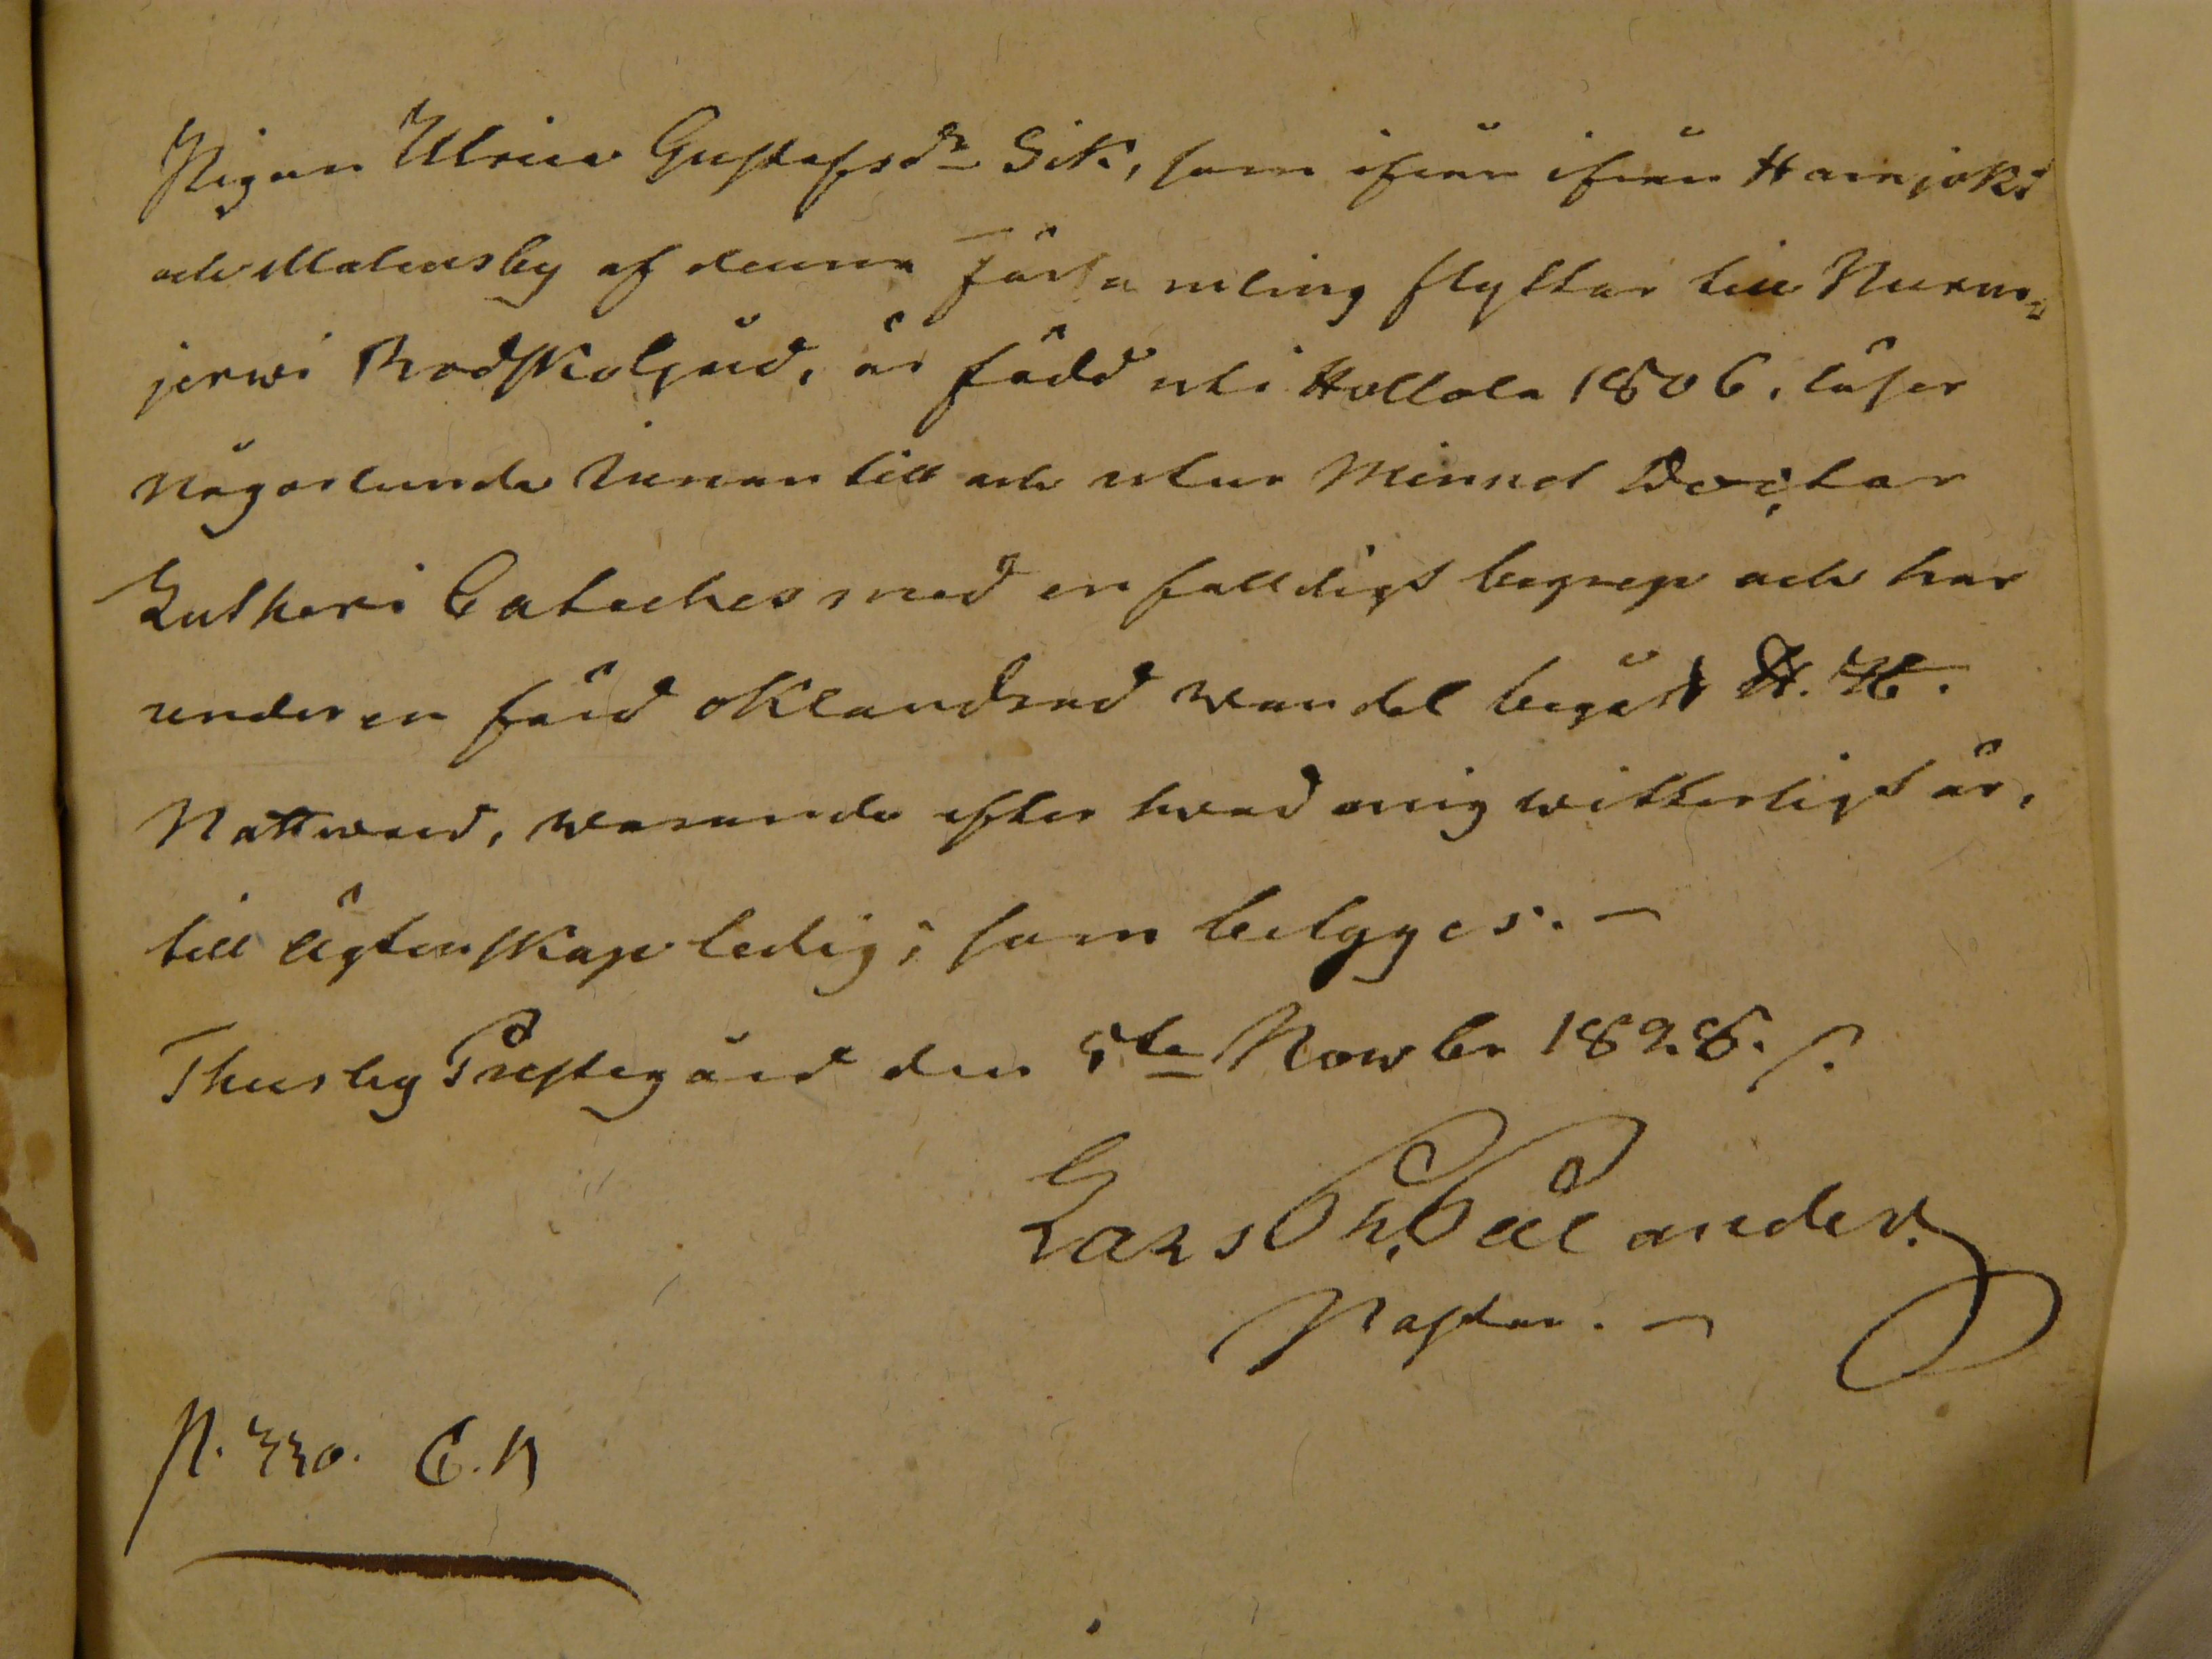 Pigan Ulrica Gustafsdr Sik, som ifrån ifrån Haarjoki
och Mateusby af denna Församling flyttar till Nurm=
jerwi Bodskolgård, är född uti Hollola 1806, läser
någorlunda innantill och utur Minnet Doctor
Lutheri Cateches med enfalldigt begrep och har
under en förd oklandrad wandel begått H. H.
Nattward, warande efter hwad mig witterligt är,
till ägtenskap ledig; som betyges. –
Thusby Prestegård den 5te Nowbr 1828.
Lars Joh. Ahlander.
Pastor. –
P. 330. C.B